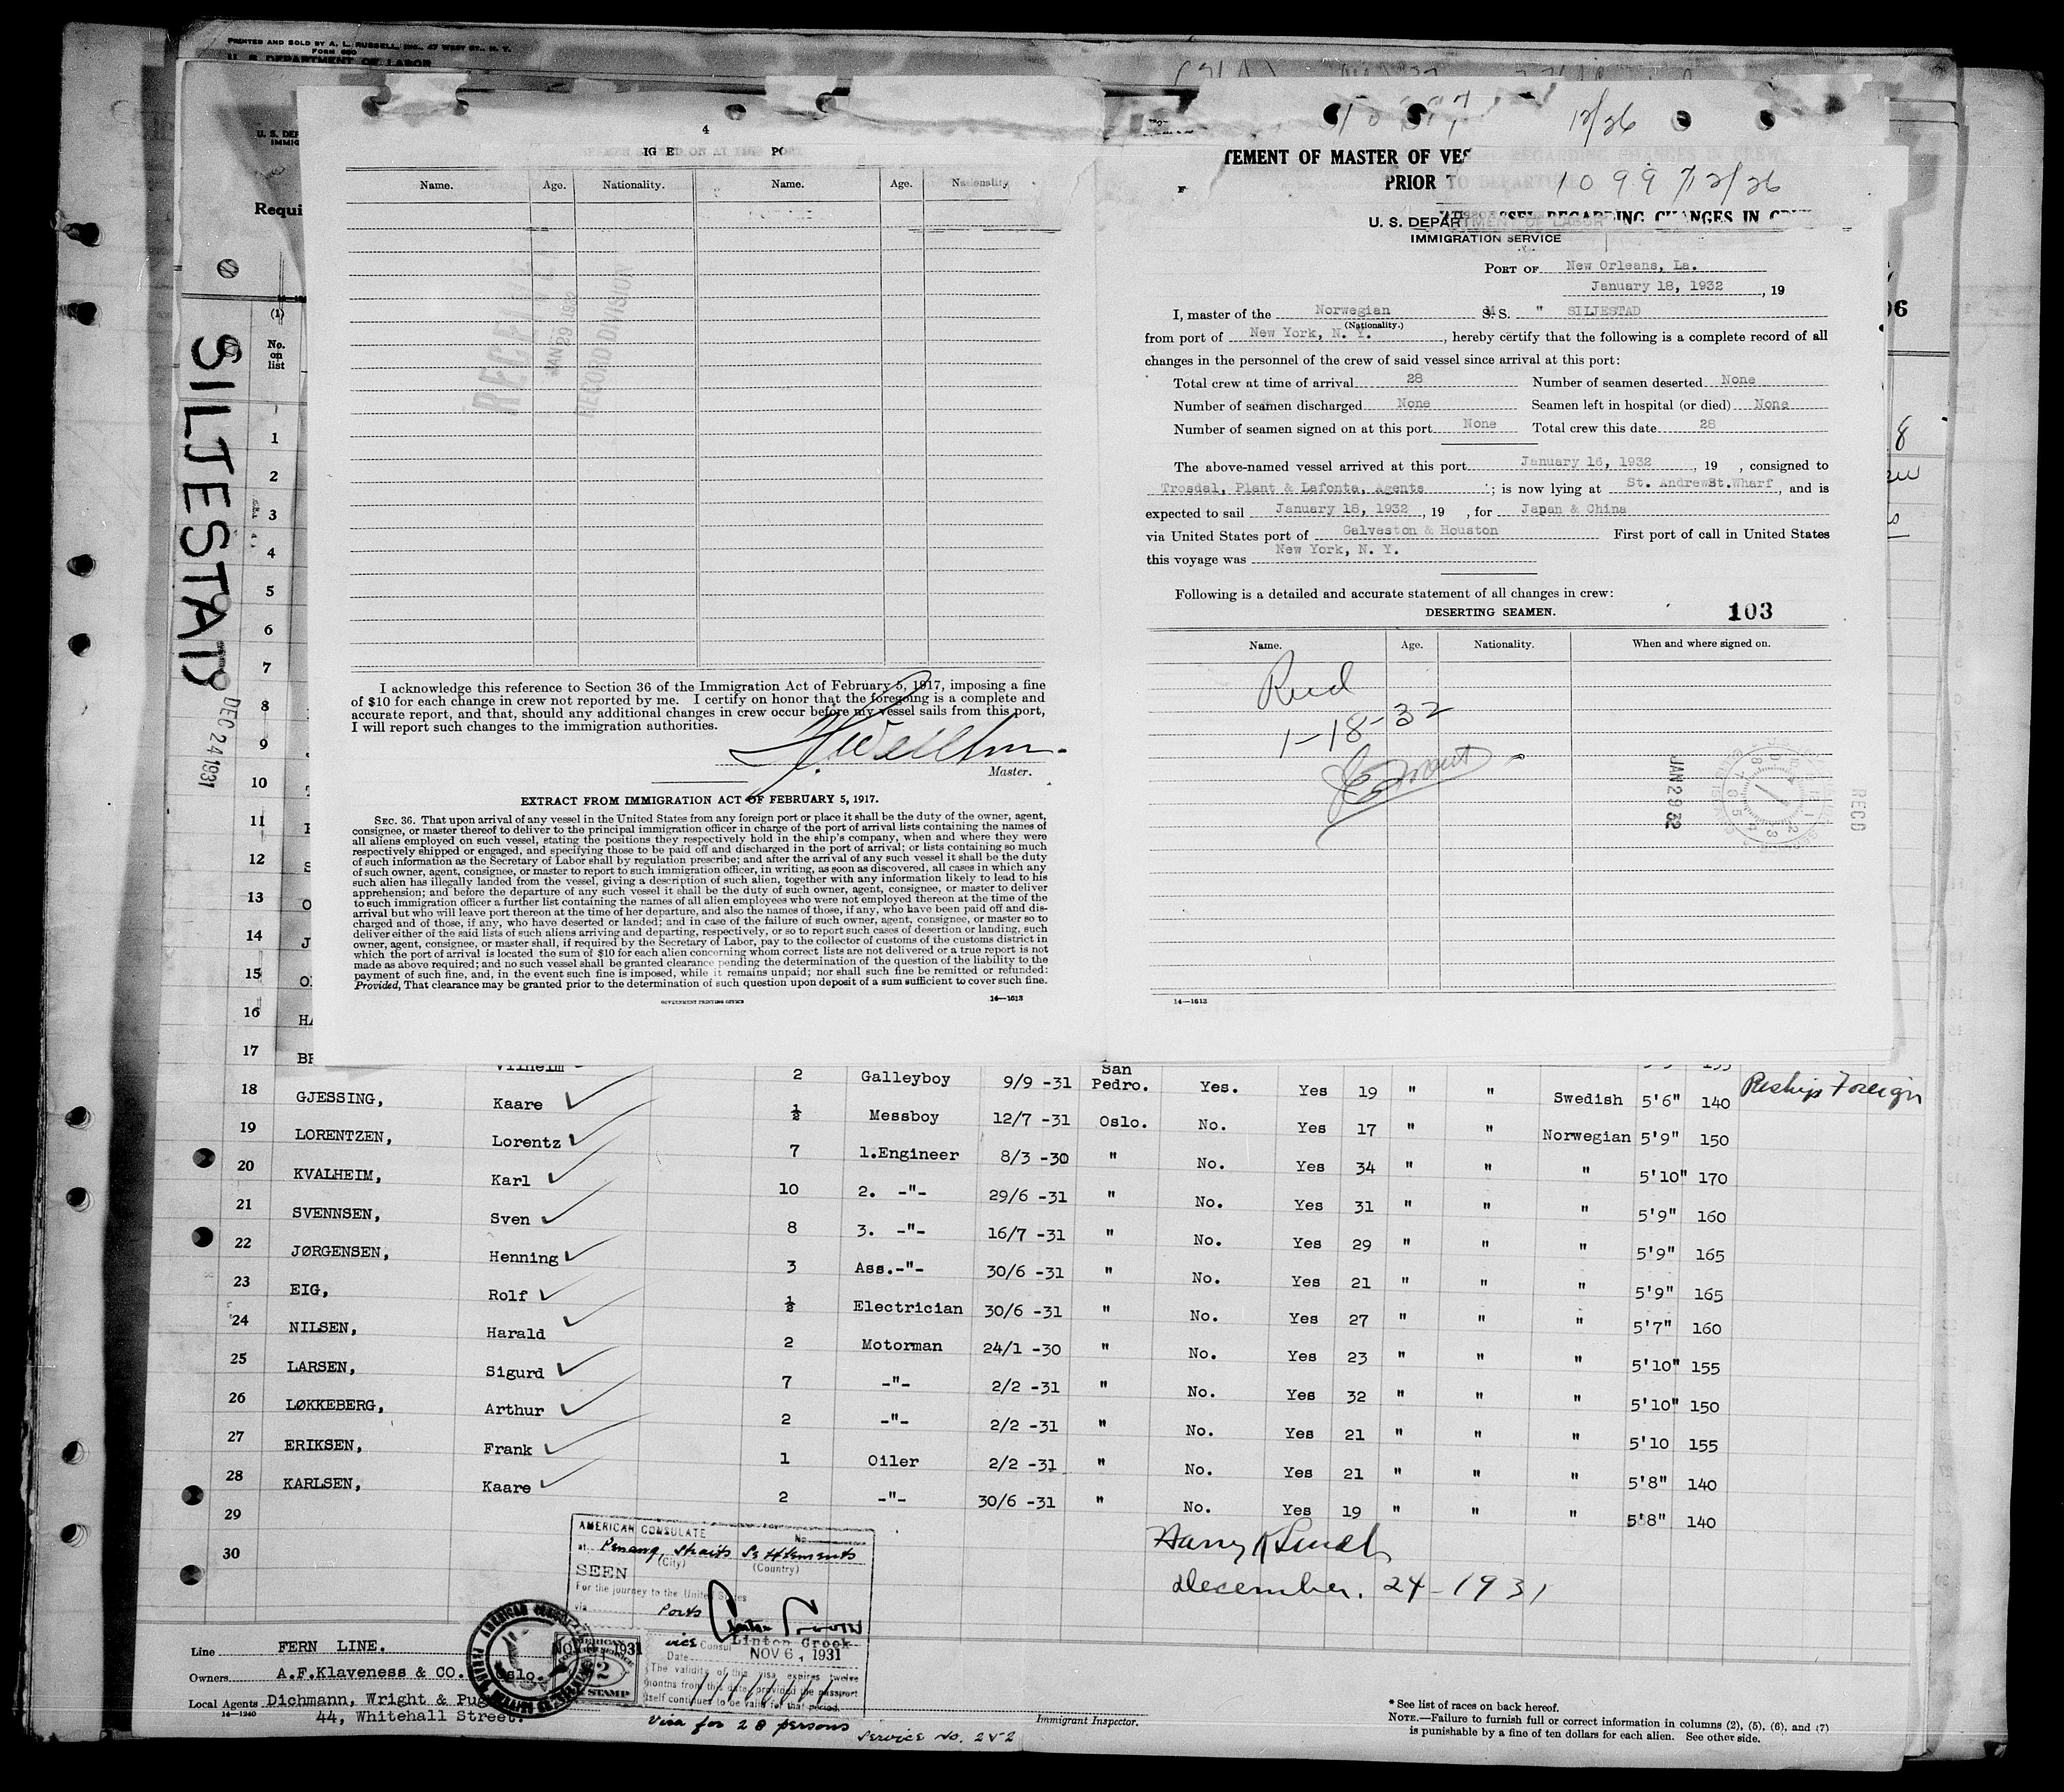 PRINTED AND SOLD BY A. L. RUSSELL, INC., 47 WEST ST., N. Y.
FORM 680
U. S. DEPARTMENT OF LABOR
SILJESTAD
DEC 24 1931
(1)
No.
on
list
1
2
3
4
5
6
7
8
9
10
11
12
13
14
15
16
17
4
Name. Age. Nationality. Name. Age. Nationality
RECEIVED
JAN 29 1932
RECORD DIVISION
I acknowledge this reference to Section 36 of the Immigration Act of February 5, 1917, imposing a fine
of $10 for each change in crew not reported by me. I certify on honor that the foregoing is a complete and
accurate report, and that, should any additional changes in crew occur before my vessel sails from this port,
I will report such changes to the immigration authorities.
Master.
EXTRACT FROM IMMIGRATION ACT OF FEBRUARY 5, 1917.
SEC. 36. That upon arrival of any vessel in the United States from any foreign port or place it shall be the duty of the owner, agent,
consignee, or master thereof to deliver to the principal immigration officer in charge of the port of arrival lists containing the names of
all aliens employed on such vessel, stating the positions they respectively hold in the ship's company, when and where they were
respectively shipped or engaged, and specifying those to be paid off and discharged in the port of arrival; or lists containing so much
of such information as the Secretary of Labor shall by regulation prescribe; and after the arrival of any such vessel it shall be the duty
of such owner, agent, consignee, or master to report to such immigration officer, in writing, as soon as discovered, all cases in which any
such alien has illegally landed from the vessel, giving a description of such alien, together with any information likely to lead to his
apprehension; and before the departure of any such vessel it shall be the duty of such owner, agent, consignee, or master to deliver
to such immigration officer a further list containing the names of all alien employees who were not employed thereon at the time of the
arrival but who will leave port thereon at the time of her departure, and also the names of those, if any, who have been paid off and dis-
charged and of those, if any, who have deserted or landed; and in case of the failure of such owner, agent, consignee, or master so to
deliver either of the said lists of such aliens arriving and departing, respectively, or so to report such cases of desertion or landing, such
owner, agent, consignee, or master shall, if required by the Secretary of Labor, pay to the collector of customs of the customs district in
which the port of arrival is located the sum of $10 for each alien concerning whom correct lists are not delivered or a true report is not
made as above required; and no such vessel shall be granted clearance pending the determination of the question of the liability to the
payment of such fine, and, in the event such fine is imposed, while it remains unpaid; nor shall such fine be remitted or refunded:
Provided, That clearance may be granted prior to the determination of such question upon deposit of a sum sufficient to cover such fine.
GOVERNMENT PRINTING OFFICE 14—1613
12/26
TEMENT OF MASTER OF VES
PRIOR TO DEPARTURE
10997 12/26
SSEL REGARDING CHANGES IN CREW
U. S. DEPARTMENT OF LABOR
IMMIGRATION SERVICE
PORT OF New Orleans, La.
January 18, 1932, 19
I, master of the Norwegian S.S. " SILJESTAD
(Nationality.)
from port of New York, N. Y., hereby certify that the following is a complete record of all
changes in the personnel of the crew of said vessel since arrival at this port:
Total crew at time of arrival 28 Number of seamen deserted None
Number of seamen discharged None Seamen left in hospital (or died) None
Number of seamen signed on at this port None Total crew this date 28
The above-named vessel arrived at this port January 16, 1932, 19 , consigned to
Trosdal, Plant & Lafonta, Agents ; is now lying at St. Andrews St. Wharf, and is
expected to sail January 18, 1932, 19 , for Japan & China
via United States port of Galveston & Houston First port of call in United States
this voyage was New York, N. Y.
Following is a detailed and accurate statement of all changes in crew:
DESERTING SEAMEN. 103
Name. Age. Nationality. When and where signed on.
Recd
1-18-32
JAN 29 32
RECD
14—1613
Vilhelm 2 Galleyboy 9/9 -31 San Pedro. Yes. Yes 19 " " Swedish 5'6" 140 Reship Foreign
18 GJESSING, Kaare ½ Messboy 12/7 -31 Oslo. No. Yes 17 " " Norwegian 5'9" 150
19 LORENTZEN, Lorentz 7 1.Engineer 8/3 -30 " No. Yes 34 " " " 5'10" 170
20 KVALHEIM, Karl 10 2. -"- 29/6 -31 " No. Yes 31 " " " 5'9" 160
21 SVENNSEN, Sven 8 3. -"- 16/7 -31 " No. Yes 29 " " " 5'9" 165
22 JØRGENSEN, Henning 3 Ass.-"- 30/6 -31 " No. Yes 21 " " " 5'9" 165
23 EIG, Rolf ½ Electrician 30/6 -31 " No. Yes 27 " " " 5'7" 160
24 NILSEN, Harald 2 Motorman 24/1 -30 " No. Yes 23 " " " 5'10" 155
25 LARSEN, Sigurd 7 -"- 2/2 -31 " No. Yes 32 " " " 5'10" 150
26 LØKKEBERG, Arthur 2 -"- 2/2 -31 " No. Yes 21 " " " 5'10 155
27 ERIKSEN, Frank 1 Oiler 2/2 -31 " No. Yes 21 " " " 5'8" 140
28 KARLSEN, Kaare 2 -"- 30/6 -31 " No. Yes 19 " " " 5'8" 140
29
30
December. 24-1931
AMERICAN CONSULATE No.
at Penang, Straits Settlements
(City) (Country)
SEEN
For the journey to the United States
via Ports
vice Consul Linton Crook
Date NOV 6, 1931
The validity of this visa expires twelve
months from this date provided the passport
itself continues to be valid for that period.
Visa for 28 persons
Service No. 252
Line FERN LINE.
Owners A.F.Klaveness & CO. Oslo.
Local Agents Dichmann, Wright & Pug
44, Whitehall Street.
14—1240
Immigrant Inspector.
* See list of races on back hereof.
NOTE.—Failure to furnish full or correct information in columns (2), (5), (6), and (7)
is punishable by a fine of ten dollars for each alien. See other side.